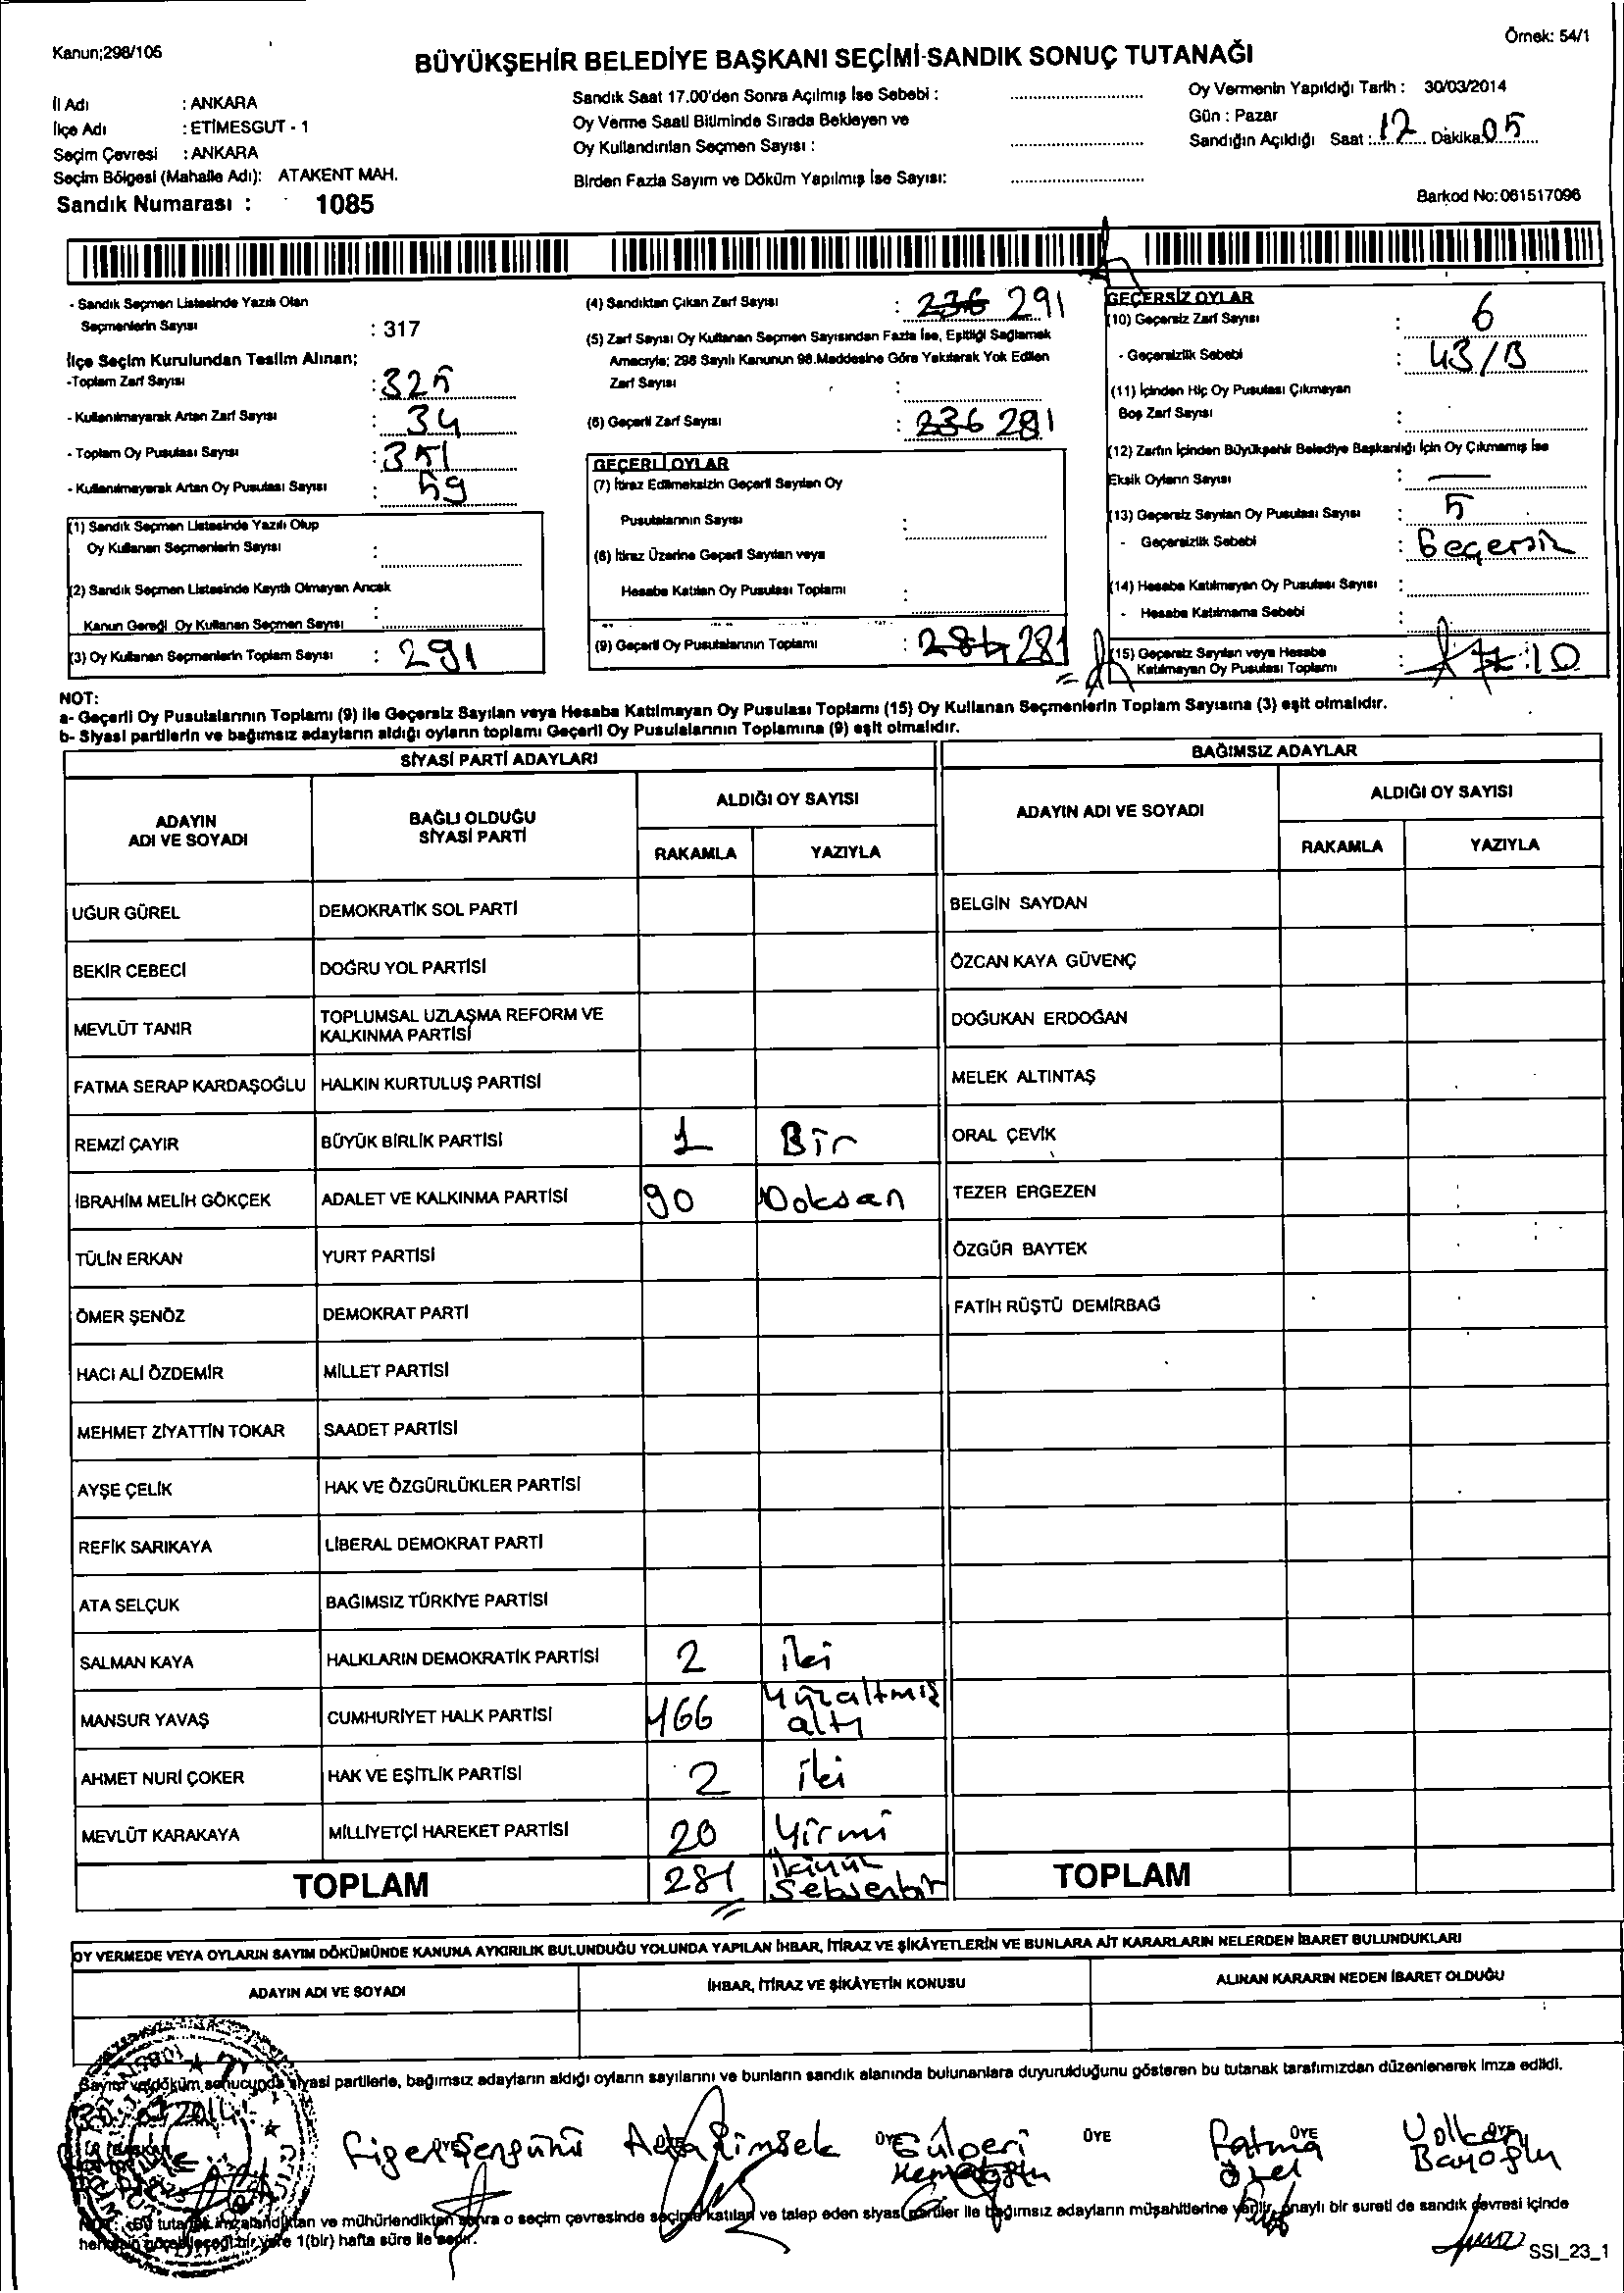 Kanun;298/105
Örnek: 54/1
BÜYÜKŞEHİR BELEDİYE BAŞKANI SEÇİMİ-SANDIK SONUÇ TUTANAĞI
İl Adı : ANKARA
İlçe Adı : ETİMESGUT - 1
Seçim Çevresi : ANKARA
Seçim Bölgesi (Mahalle Adı): ATAKENT MAH.
Sandık Numarası : 1085
Sandık Saat 17.00'den Sonra Açılmış İse Sebebi :
Oy Verme Saati Bitiminde Sırada Bekleyen ve
Oy Kullandırılan Seçmen Sayısı :
Birden Fazla Sayım ve Döküm Yapılmış İse Sayısı:
Oy Vermenin Yapıldığı Tarih : 30/03/2014
Gün : Pazar
Sandığın Açıldığı Saat : 12 Dakika 05
Barkod No:061517096
- Sandık Seçmen Listesinde Yazılı Olan
Seçmenlerin Sayısı : 317
İlçe Seçim Kurulundan Teslim Alınan;
-Toplam Zarf Sayısı : 325
- Kullanılmayarak Artan Zarf Sayısı : 34
- Toplam Oy Pusulası Sayısı : 351
- Kullanılmayarak Artan Oy Pusulası Sayısı : 59
(1) Sandık Seçmen Listesinde Yazılı Olup
Oy Kullanan Seçmenlerin Sayısı :
(2) Sandık Seçmen Listesinde Kayıtlı Olmayan Ancak
Kanun Gereği Oy Kullanan Seçmen Sayısı :
(3) Oy Kullanan Seçmenlerin Toplam Sayısı : 291
(4) Sandıktan Çıkan Zarf Sayısı : 236 291
(5) Zarf Sayısı Oy Kullanan Seçmen Sayısından Fazla İse, Eşitliği Sağlamak
Amacıyla; 298 Sayılı Kanunun 98.Maddesine Göre Yakılarak Yok Edilen
Zarf Sayısı :
(6) Geçerli Zarf Sayısı : 236 281
GEÇERLİ OYLAR
(7) İtiraz Edilmeksizin Geçerli Sayılan Oy
Pusulalarının Sayısı :
(8) İtiraz Üzerine Geçerli Sayılan veya
Hesaba Katılan Oy Pusulası Toplamı :
(9) Geçerli Oy Pusulalarının Toplamı : 284 281
GEÇERSİZ OYLAR
(10) Geçersiz Zarf Sayısı : 6
- Geçersizlik Sebebi : 43/B
(11) İçinden Hiç Oy Pusulası Çıkmayan
Boş Zarf Sayısı :
(12) Zarfın İçinden Büyükşehir Belediye Başkanlığı İçin Oy Çıkmamış İse
Eksik Oyların Sayısı : —
(13) Geçersiz Sayılan Oy Pusulası Sayısı : 5
- Geçersizlik Sebebi : Geçersiz
(14) Hesaba Katılmayan Oy Pusulası Sayısı :
- Hesaba Katılmama Sebebi :
(15) Geçersiz Sayılan veya Hesaba
Katılmayan Oy Pusulası Toplamı : 10
NOT:
a- Geçerli Oy Pusulalarının Toplamı (9) ile Geçersiz Sayılan veya Hesaba Katılmayan Oy Pusulası Toplamı (15) Oy Kullanan Seçmenlerin Toplam Sayısına (3) eşit olmalıdır.
b- Siyasi partilerin ve bağımsız adayların aldığı oyların toplamı Geçerli Oy Pusulalarının Toplamına (9) eşit olmalıdır.
SİYASİ PARTİ ADAYLARI
BAĞIMSIZ ADAYLAR
ADAYIN
ADI VE SOYADI
BAĞLI OLDUĞU
SİYASİ PARTİ
ALDIĞI OY SAYISI
RAKAMLA YAZIYLA
ADAYIN ADI VE SOYADI
ALDIĞI OY SAYISI
RAKAMLA YAZIYLA
UĞUR GÜREL DEMOKRATİK SOL PARTİ BELGİN SAYDAN
BEKİR CEBECİ DOĞRU YOL PARTİSİ ÖZCAN KAYA GÜVENÇ
MEVLÜT TANIR TOPLUMSAL UZLAŞMA REFORM VE
KALKINMA PARTİSİ DOĞUKAN ERDOĞAN
FATMA SERAP KARDAŞOĞLU HALKIN KURTULUŞ PARTİSİ MELEK ALTINTAŞ
REMZİ ÇAYIR BÜYÜK BİRLİK PARTİSİ 1 Bir ORAL ÇEVİK
İBRAHİM MELİH GÖKÇEK ADALET VE KALKINMA PARTİSİ 90 Doksan TEZER ERGEZEN
TÜLİN ERKAN YURT PARTİSİ ÖZGÜR BAYTEK
ÖMER ŞENÖZ DEMOKRAT PARTİ FATİH RÜŞTÜ DEMİRBAĞ
HACI ALİ ÖZDEMİR MİLLET PARTİSİ
MEHMET ZİYATTİN TOKAR SAADET PARTİSİ
AYŞE ÇELİK HAK VE ÖZGÜRLÜKLER PARTİSİ
REFİK SARIKAYA LİBERAL DEMOKRAT PARTİ
ATA SELÇUK BAĞIMSIZ TÜRKİYE PARTİSİ
SALMAN KAYA HALKLARIN DEMOKRATİK PARTİSİ 2 iki
MANSUR YAVAŞ CUMHURİYET HALK PARTİSİ 166 Yüzaltmış
altı
AHMET NURİ ÇOKER HAK VE EŞİTLİK PARTİSİ 2 iki
MEVLÜT KARAKAYA MİLLİYETÇİ HAREKET PARTİSİ 20 Yirmi
TOPLAM 281 ikiyüz
Seksenbir
TOPLAM
OY VERMEDE VEYA OYLARIN SAYIM DÖKÜMÜNDE KANUNA AYKIRILIK BULUNDUĞU YOLUNDA YAPILAN İHBAR, İTİRAZ VE ŞİKÂYETLERİN VE BUNLARA AİT KARARLARIN NELERDEN İBARET BULUNDUKLARI
ADAYIN ADI VE SOYADI İHBAR, İTİRAZ VE ŞİKÂYETİN KONUSU ALINAN KARARIN NEDEN İBARET OLDUĞU
Sayım ve döküm sonucunda siyasi partilerle, bağımsız adayların aldığı oyların sayılarını ve bunların sandık alanında bulunanlara duyurulduğunu gösteren bu tutanak tarafımızdan düzenlenerek imza edildi.
BAŞKAN ÜYE ÜYE ÜYE ÜYE ÜYE ÜYE
Gülperi Fatma Özel Volkan
NOT: Bu tutanak imzalandıktan ve mühürlendikten sonra o seçim çevresinde seçime katılan ve talep eden siyasi partiler ile bağımsız adayların müşahitlerine verilir, onaylı bir sureti de sandık çevresi içinde
herkesin görebileceği bir yere 1(bir) hafta süre ile asılır.
SSI_23_1